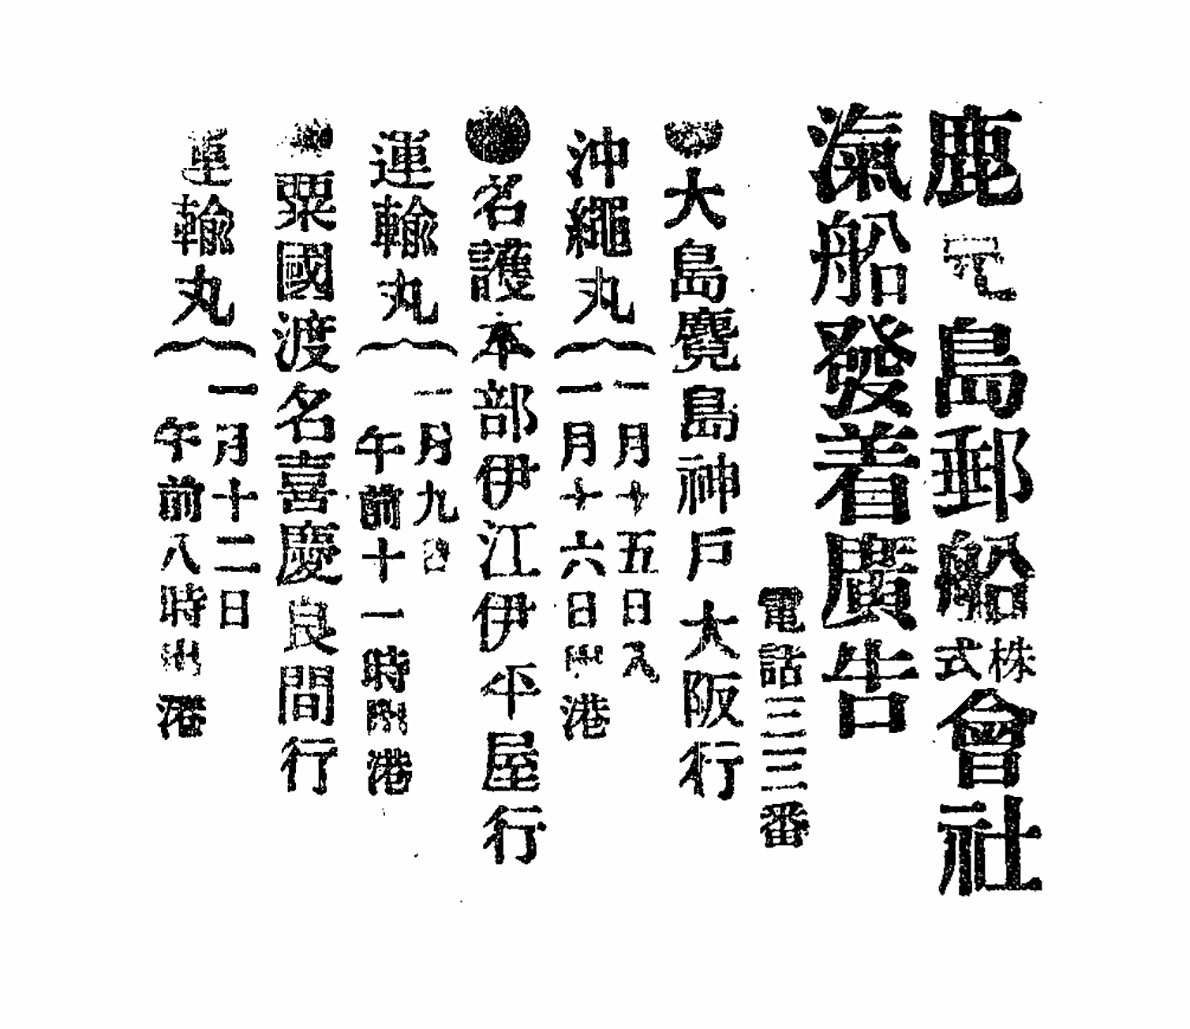 鹿兒島郵船株式會社
滊船發着廣告
電話三三番
●大島麑島神戸大阪行
沖繩丸
一月十五日入
一月十六日出港
●名護本部伊江伊平屋行
運輸丸
一月九日
午前十一時出港
●粟國渡名喜慶良間行
運輸丸
一月十二日
午前八時出港